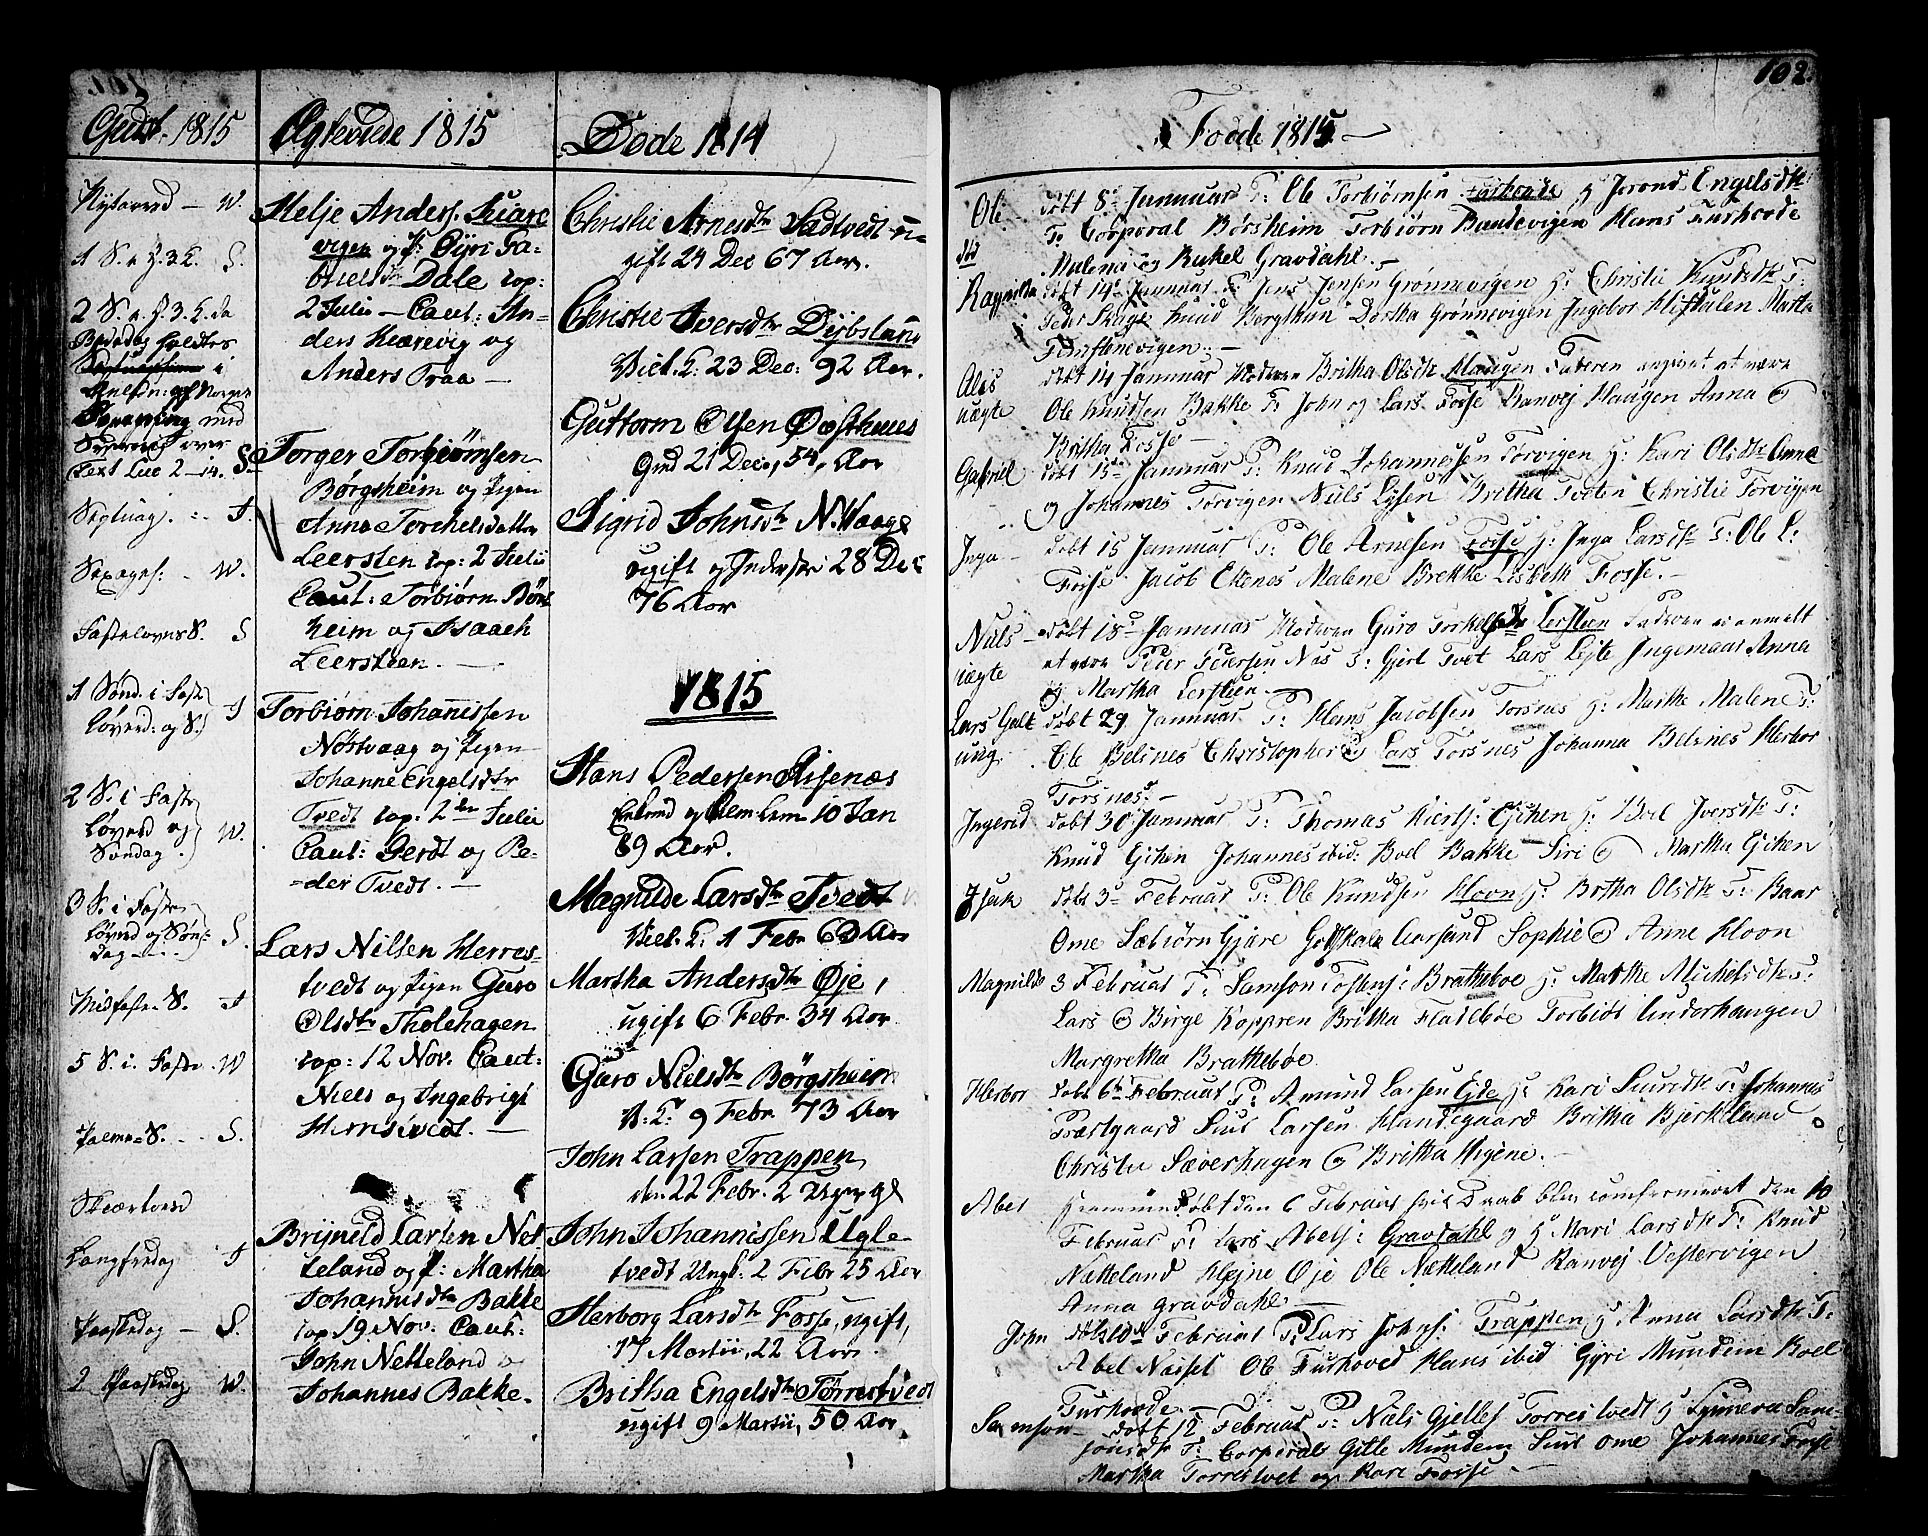 102.
Gudst. 1815
Nytaarsd — W.
1 S. a. J. 3 K. S.
2 S. a. J. 3. K. da
Bededag holdtes
i
med
over
Text Luc 2–14. S.
Septuag. — T.
Sexages. — W.
Fastelovns S. S
1 Sønd. i Faste
Løverd: og S. T
2 S. i Faste
Løverd og
Søndag W.
3 S. i Faste
Løverd og Søn-
dag — S.
Midfaste S. T
5 S. i. Faste W
Palme S. S.
Skiærtorsd
Langfredag T
Paaskedag — S.
2 Paaskedag W.
Ægteviede 1815
Helje Anders. Quare
vigen og P: Gyri Ga-
brielsdtr Dale cop:
2 Julii — Caut: An-
ders Kvarevig og
Anders Traa —
Torger Torbiørnsen
Børgsheim og Pigen
Anna Torchelsdatter
Leersteen cop: 2 Julii
Caut: Torbiørn Børs
heim og Isaach
Leersteen. —
Torbiørn Johannissen
Nøstvaag og Pigen
Johanne Engelsdtr
Tvedt cop: 2den Julii
Caut: Gerdt og Pe-
der Tvedt. —
Lars Nilsen Herres-
tvedt og Pigen Guro
Olsdtr Tholehagen
cop: 12 Nov. Caut:
Niels og Ingebrigt
Herrestvedt. —
Brynild Larsen Net
teland og P: Martha
Johannisdtr Bakke
cop 19 Nov: Caut:
John Netteland og
Johannes Bakke.
Døde 1814
Christie Arnesdtr Vadtvedt u-
gift 24 Dec 67 Aar.
Christie Iversdtr Dybsland
Viet. E: 23 Dec: 92 Aar.
Guttorm Olsen Østhuus
Gmd 21 Dec, 54, Aar
Sigrid Johnsdtr N.Waage
ugift og Inderste 28 Dec
76 Aar
1815
Hans Pedersen Risenæs
Enkemd og Alm: Lem 10 Jan
89 Aar.
Magnilde Larsdtr Tvedt
Viet. E. 1 Febr 60 Aar
Martha Andersdtr Øje,
ugift 6 Febr. 34 Aar
Guro Nielsdtr Børgsheim
V. E. 9 Febr 73 Aar
John Larsen Trappen
den 22 Febr. 2 Uger gl
John Johannissen Ugle-
tvedt Ungk. 2 Febr 25 Aar
Herborg Larsdtr Fosse, ugift,
17 Martii, 22 Aar.
Britha Engelsdtr Torrestvedt
ugift 9 Martii, 50 Aar
Fødde 1815 —
Ole døbt 8de Januar F: Ole Torbiørnsen Furhovde H Jorond Engelsdtr
F: Corporal Børsheim Torbiørn Bandevigen Hans Furhovde
Malena og Rakel Gravdahl. —
Ragnilda døbt 14de Januar F: Jens Jensen Grønnevigen H: Christie Knudsdtr F:
Peder Skage Knud Berghun Dortha Grønnevigen Ingebor Hiftalen Marta
Femstenevigen. —
Alis døbt 14 Januar Moderen Britha Olsdtr Haugen Faderen angivet at være
uægte Ole Knudsen Bakke F: John og Lars Fosse Ranvej Haugen Anna og
Britha Fosse —
Gabriel døbt 15de Januar F: Knud Johannessen Torvigen H: Kari Olsdtr Anne
og Johannes Torvigen Niels Lysen Britha Tveten Christie Torvigen
Inga — døbt 15 Januar F: Ole Arnesen Fosse H: Inga Larsdtr F: Ole L:
Fosse Jacob Ekenes Malene Brekke Lisbeth Fosse. —
Niels — døbt 18de Januar Moderen Guro Torkelsdtr Lersteen Faderen er anmelt
uægte at være Peder Pedersen Næs F: Gjert Tvet Lars Lejte Ingemaar Anna
og Martha Lersteen. —
Lars Galt døbt 29 Januar F: Hans Jacobsen Torsnes H: Marthe Malene F:
ung. Ole Belsnes Christopher og Lars Torsnes Johanna Belsnes Herbor
Torsnes —
Ingerid døbt 30 Januar F: Thomas Hierts: Gjchen H: Boel Iversdtr F:
Knud Gjchen Johannes ibid: Boel Bakke Siri og Martha Gjchen
Isach døbt 3de Februar F: Ole Knudsen Moon H: Britha Olsdtr F: Baar
Ome Sæbiørn Gjære Godskalk Aarsand Sophie og Anne Moon
Magnilde 3 Februar F: Samson Tostens: Bratheboe H: Marthe Michelsdtr F:
Lars og Birge Koppren Britha Flateboe Torbiør Underhaugen
Margretha Bratheboe
Herbor døbt 6te Februar F: Amund Larsen Eyde H: Kari Siursdtr F: Johannes
Præstgaard Siur Larsen Handegaard Britha Bjerkeland
Christie Sæverhagen og Britha Higene. —
Abel hiemmedøbt den 6 Februar hvis Daab blev comfermeret den 10
Februar F: Lars Abels: Gravdahl og H Mari Larsdtr F: Knud
Nætteland Klejne Øje Ole Nætteland Ranvej Vestervigen
Anna Gravdahl —
John døbt 10de Februar F: Lars Johns: Trappen H Anna Larsdtr F:
Abel Nasset Ole Furhoved Hans ibid Gyri Mundem Boel
Furhovde —
Samson — døbt 12 Februar F: Niels Gjellef Torrestvedt H Synneva Sam-
sonsdtr F: Corporal Gitle Mundem Siur Ome Johannes Fosse
Martha Torrestvet og Kari Fosse —